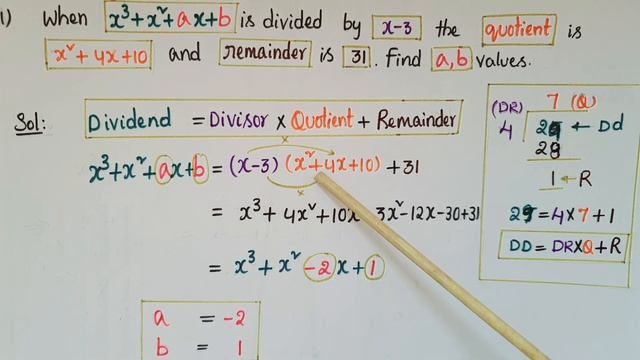 1) When x³+x²+ax+b is divided by x-3 the quotient is
x²+4x+10 and remainder is 31. Find a,b values.
Sol: Dividend = Divisor x Quotient + Remainder
x
x³+x²+ax+b = (x-3) (x²+4x+10) +31
x
= x³+4x²+10x 3x²-12x-30+31
= x³+x²-2x+1
a = -2
b = 1
7 (Q)
(DR) 4 29 ← Dd
28
1 ← R
29=4x7+1
DD=DRxQ+R